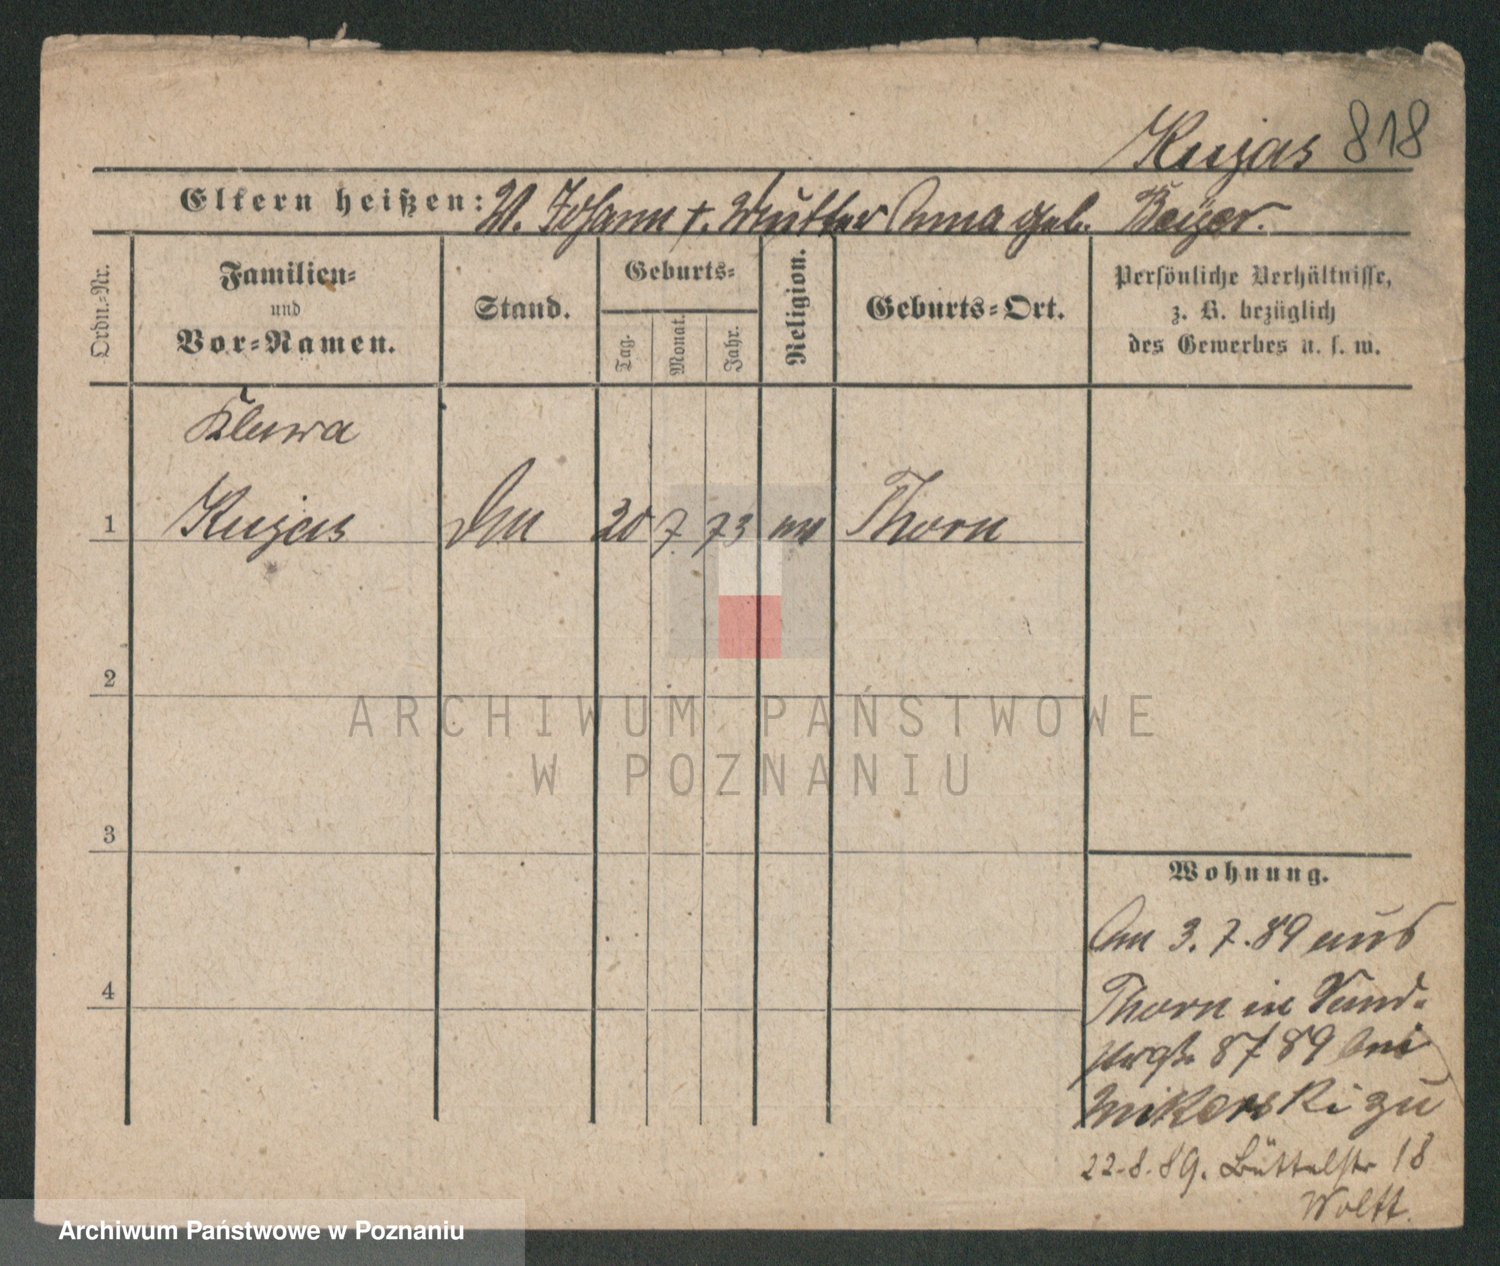 Kujas 818
Eltern heißen: V. Johann †. Mutter Anna geb. Beyer.
Ordn.-Nr.
Familien-
und
Vor-Namen.
Stand.
Geburts-
Tag.
Monat.
Jahr.
Religion.
Geburts-Ort.
Persönliche Verhältnisse,
z. B. bezüglich
des Gewerbes u. s. w.
1 Kujas 20 7. 73 Thorn
2
3
4
Wohnung.
Am 3. 7. 89 aus
Thorn in
87 89 bei
Mikorski zu
22.8.89. Büttelstr 18
Wolff.
ARCHIWUM PAŃSTWOWE
W POZNANIU
Archiwum Państwowe w Poznaniu